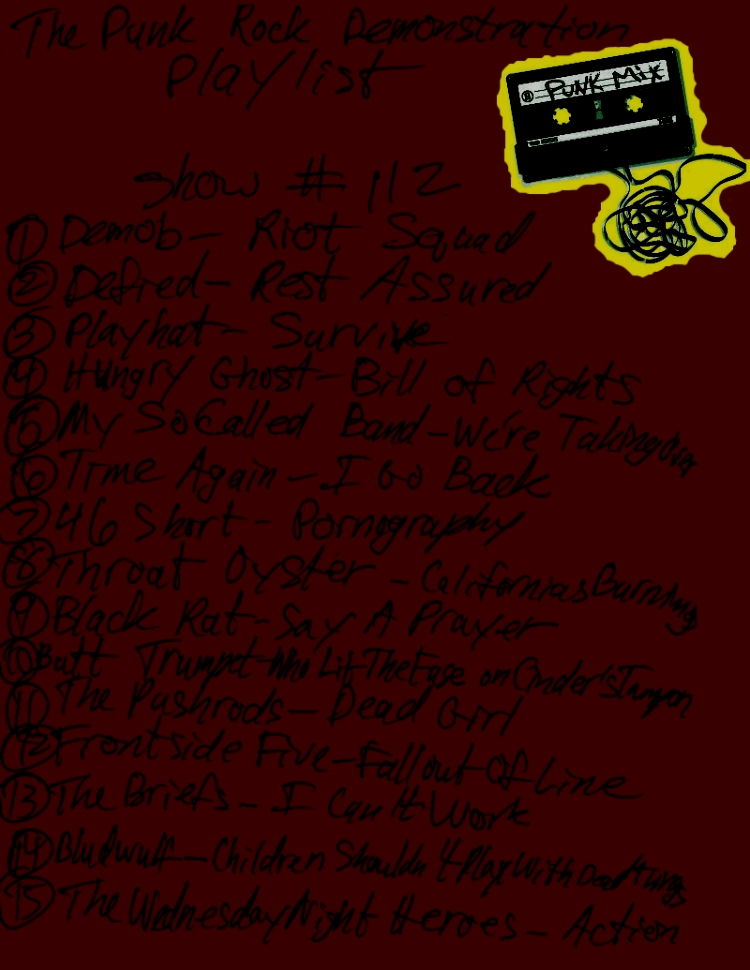 The Punk Rock Demonstration
Playlist
PUNK MIX
Show # 112
① Demob – Riot Squad
② Defied – Rest Assured
③ Playhat – Survive
④ Hungry Ghost – Bill of Rights
⑤ My So Called Band – We're Taking Over
⑥ Time Again – I Go Back
⑦ 46 Short – Pornography
⑧ Throat Oyster – Californias Burning
⑨ Black Rat – Say A Prayer
⑩ Butt Trumpet – Who Lit The Fuse on Cinder's Tampon
⑪ The Pushrods – Dead Girl
⑫ Frontside Five – Fall out Of Line
⑬ The Briefs – I Can't Work
⑭ Bludwulf – Children Shouldn't Play With Dead Things
⑮ The Wednesday Night Heroes – Action